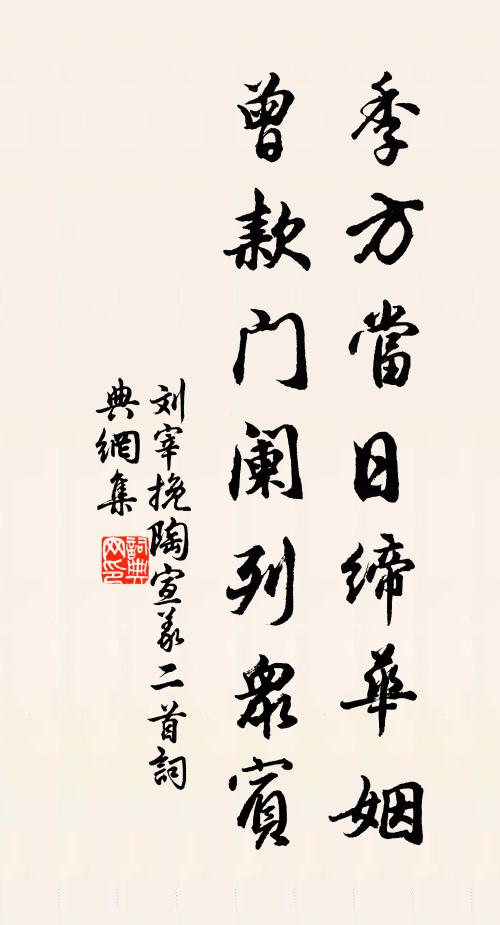 季方當日締華姻
曾款門阑列眾賓
刘宰挽陶宣義二首詞
典網集
詞典网印